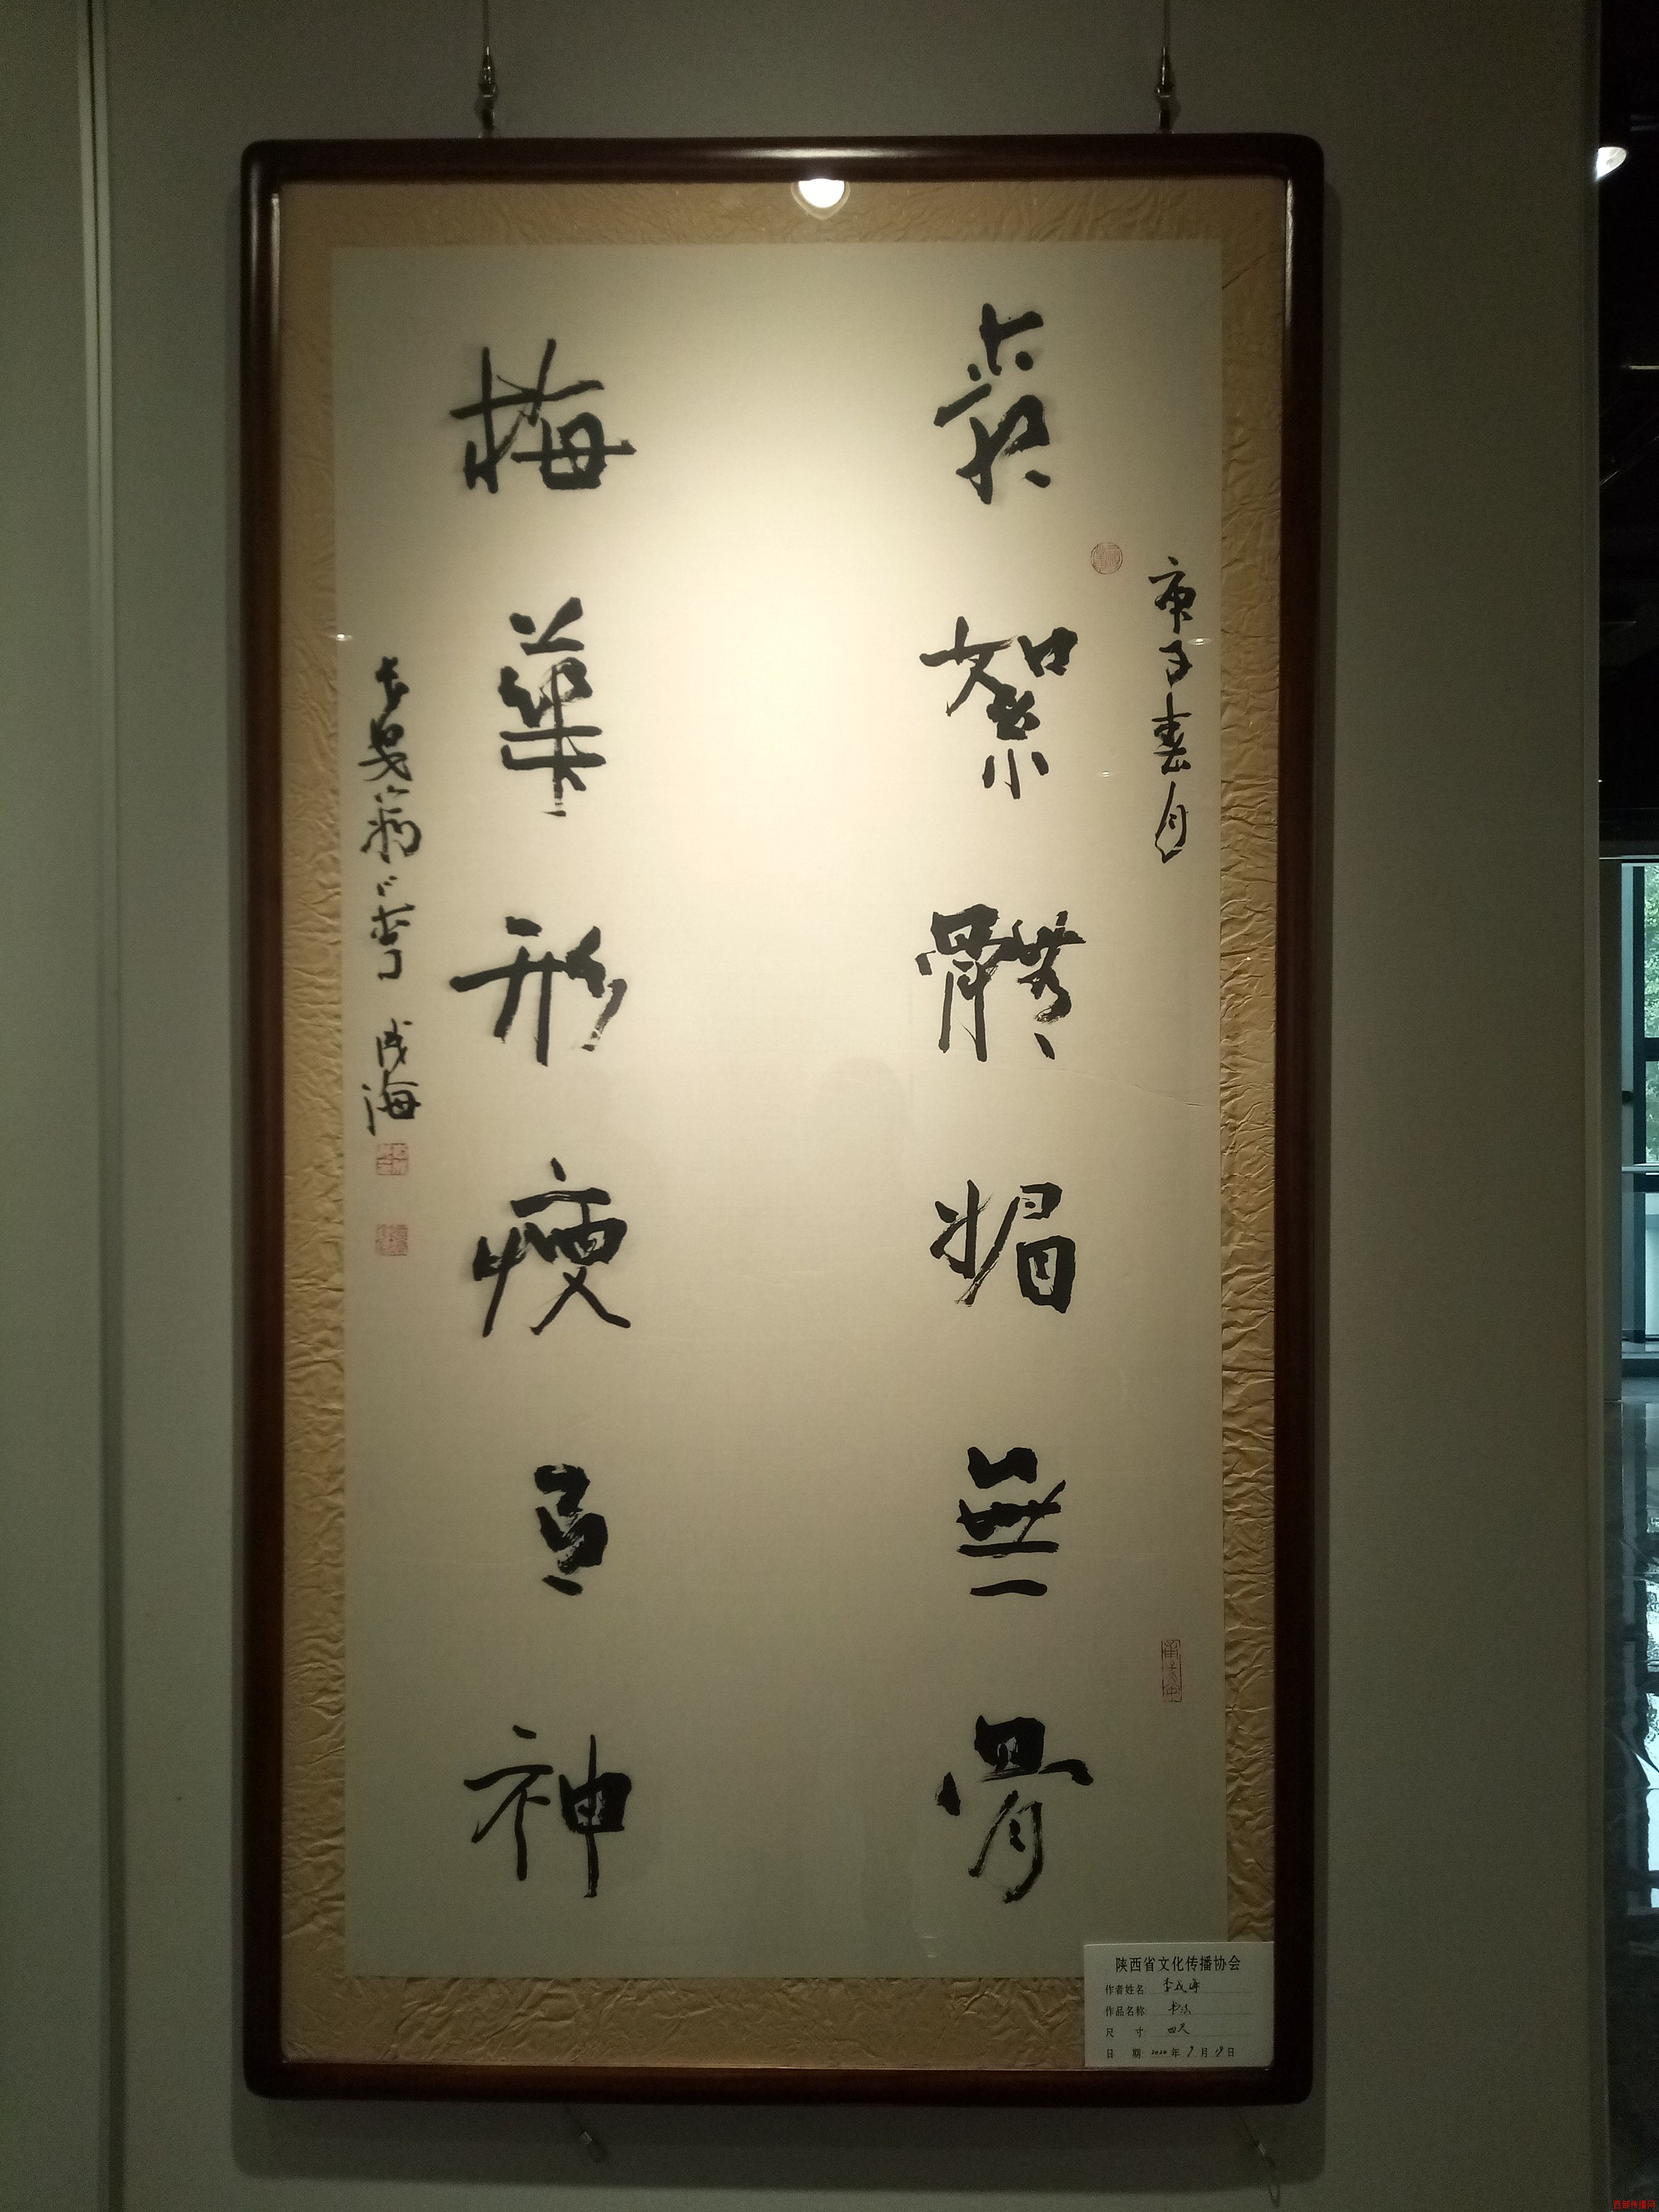 庚子春月
絮體媚無骨
梅華形瘦有神
成海
陕西省文化传播协会
作者姓名 李成海
作品名称 书法
尺寸 四尺
日期 2020年9月19日
西部传播网